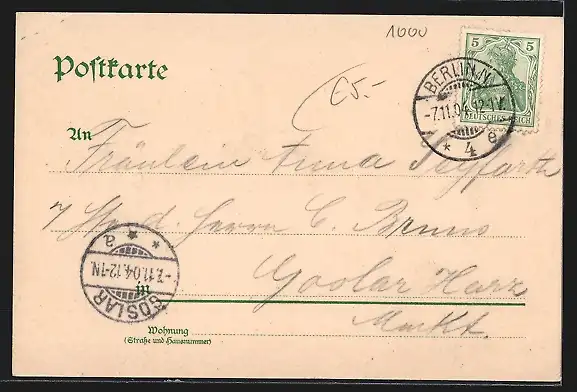 1000
Postkarte
5 5
DEUTSCHES REICH
BERLIN, N.
-7.11.04. 12-1 V.
* 4 e
E5-
An
Fräulein Anna Seyffarth
Herrn C. Bruns
* * a
-7.11.04. 12-1N.
GOSLAR
in Goslar Harz
Markt.
Wohnung
(Straße und Hausnummer)